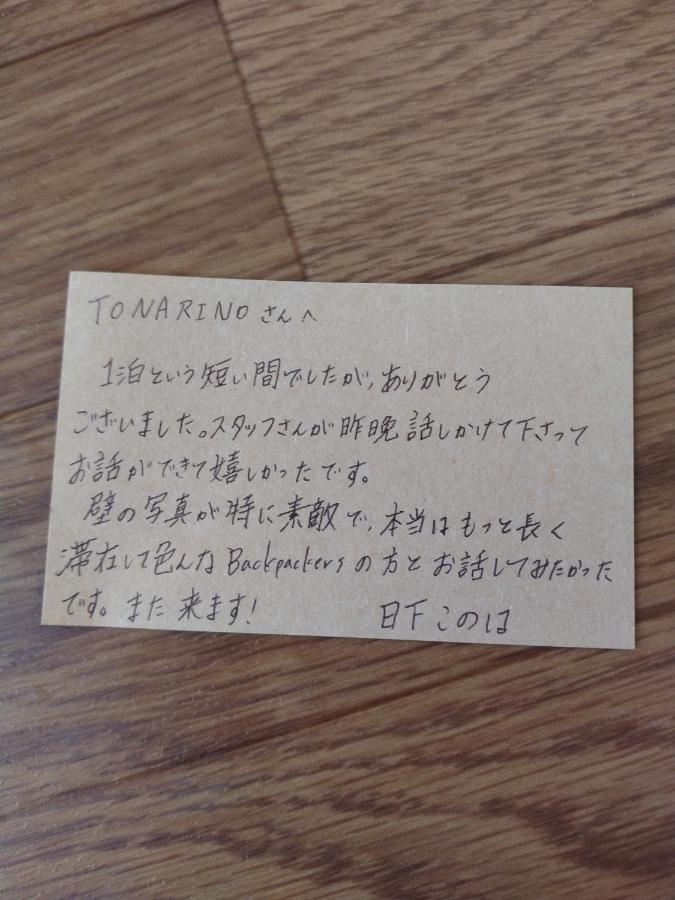 TONARINO さんへ
1泊という短い間でしたが、ありがとう
ございました。スタッフさんが昨晩話しかけて下さって
お話ができて嬉しかったです。
壁の写真が特に素敵で、本当はもっと長く
滞在して色んなBackpackersの方とお話してみたかった
です。また来ます! 日下このは